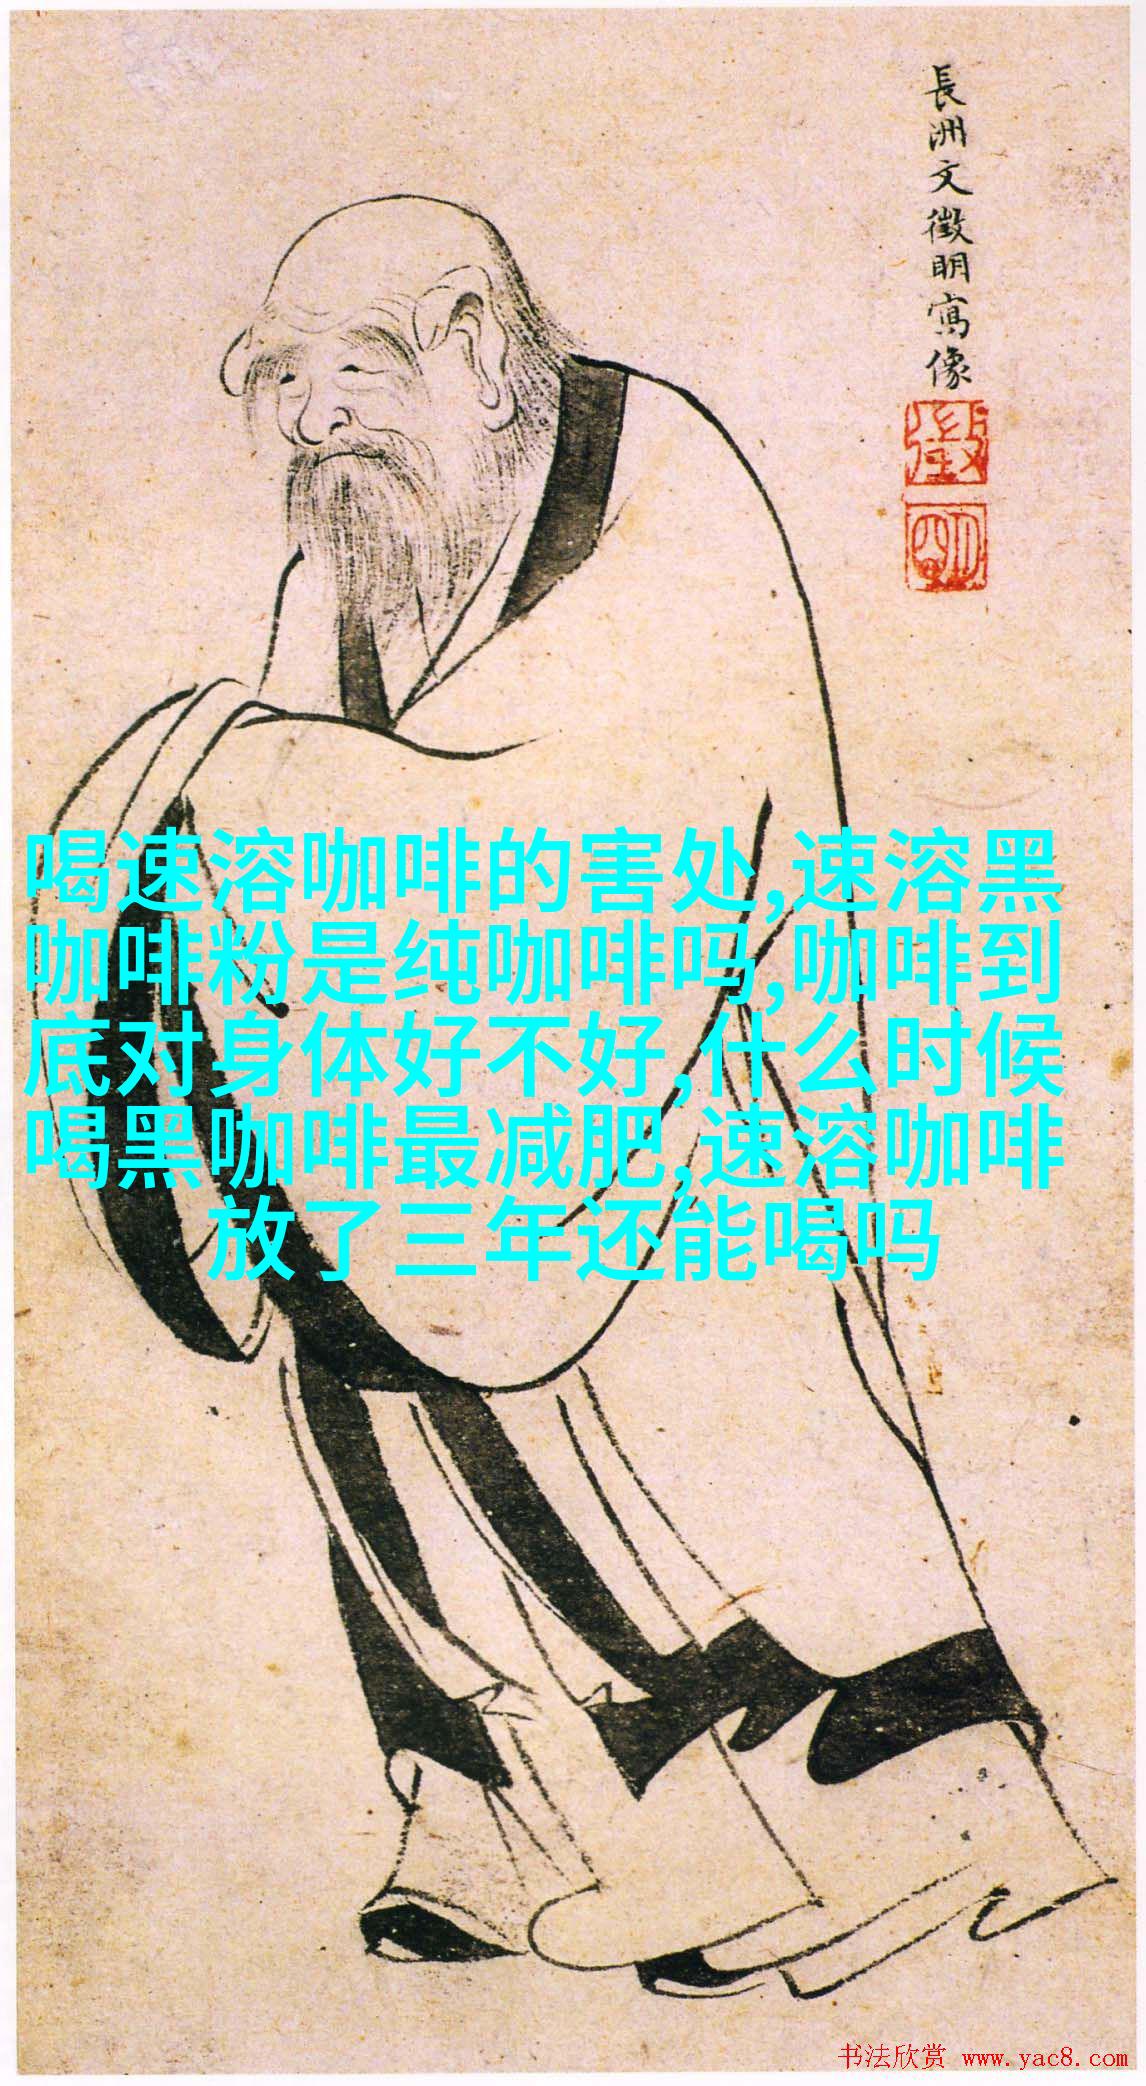 長洲文徵明寫像
徵
明
喝速溶咖啡的害处,速溶黑
咖啡粉是纯咖啡吗,咖啡到
底对身体好不好,什么时候
喝黑咖啡最减肥,速溶咖啡
放了三年还能喝吗
书法欣赏 www.yac8.com